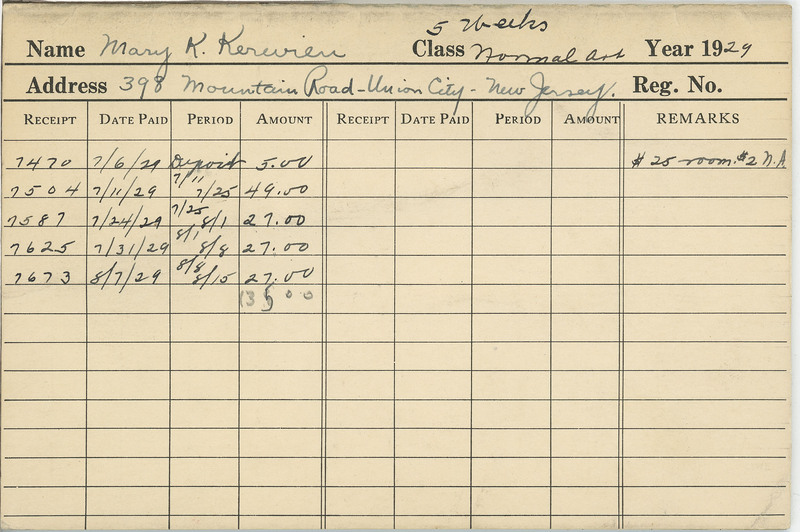 5 Weeks
Name Mary K. Kerwien Class Normal Art Year 1929
Address 398 Mountain Road - Union City - New Jersey. Reg. No.
RECEIPT DATE PAID PERIOD AMOUNT RECEIPT DATE PAID PERIOD AMOUNT REMARKS
7470 7/6/29 Deposit 5.00 $25 room. $2 N.A.
7504 7/11/29 7/11 7/25 49.00
7587 7/24/29 7/25 8/1 27.00
7625 7/31/29 8/1 8/8 27.00
7673 8/7/29 8/8 8/15 27.00
135 00